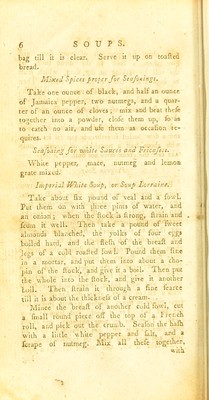 6 SOUPS.
bag till it is clear. Serve it up on toasted
bread.
Mixed Spices proper for Seasonings.
Take one ounce of black, and half an ounce
of Jamaica pepper, two nutmegs, and a quar-
ter of an ounce of cloves; mix and beat these
together into a powder, close them up, so as
to catch no air, and use them as occasion re-
quires.
Seasoning for white Sauces and Fricasees.
White pepper, mace, nutmeg and lemon
grate mixed.
Imperial White Soup, or Soup Lorraine.
Take about six pound of veal and a fowl.
Put them on with three pints of water, and
an onion; when the stock is strong, strain and
scum it well. Then take a pound of sweet
almonds blanched, the yolks of four eggs
boiled hard, and the flesh of the breast and
legs of a cold roasted fowl. Pound them fine
in a mortar, and put them into about a cho-
pin of the stock, and give it a boil. Then put
the whole into the stock, and give it another
boil. Then strain it through a fine searce
till it is about the thickness of a cream.
Mince the breast of another cold fowl, cut
a small round piece off the top of a French
roll, and pick out the crumb. Season the hash
with a little white pepper and salt, and a
scrape of nutmeg. Mix all these together,
with